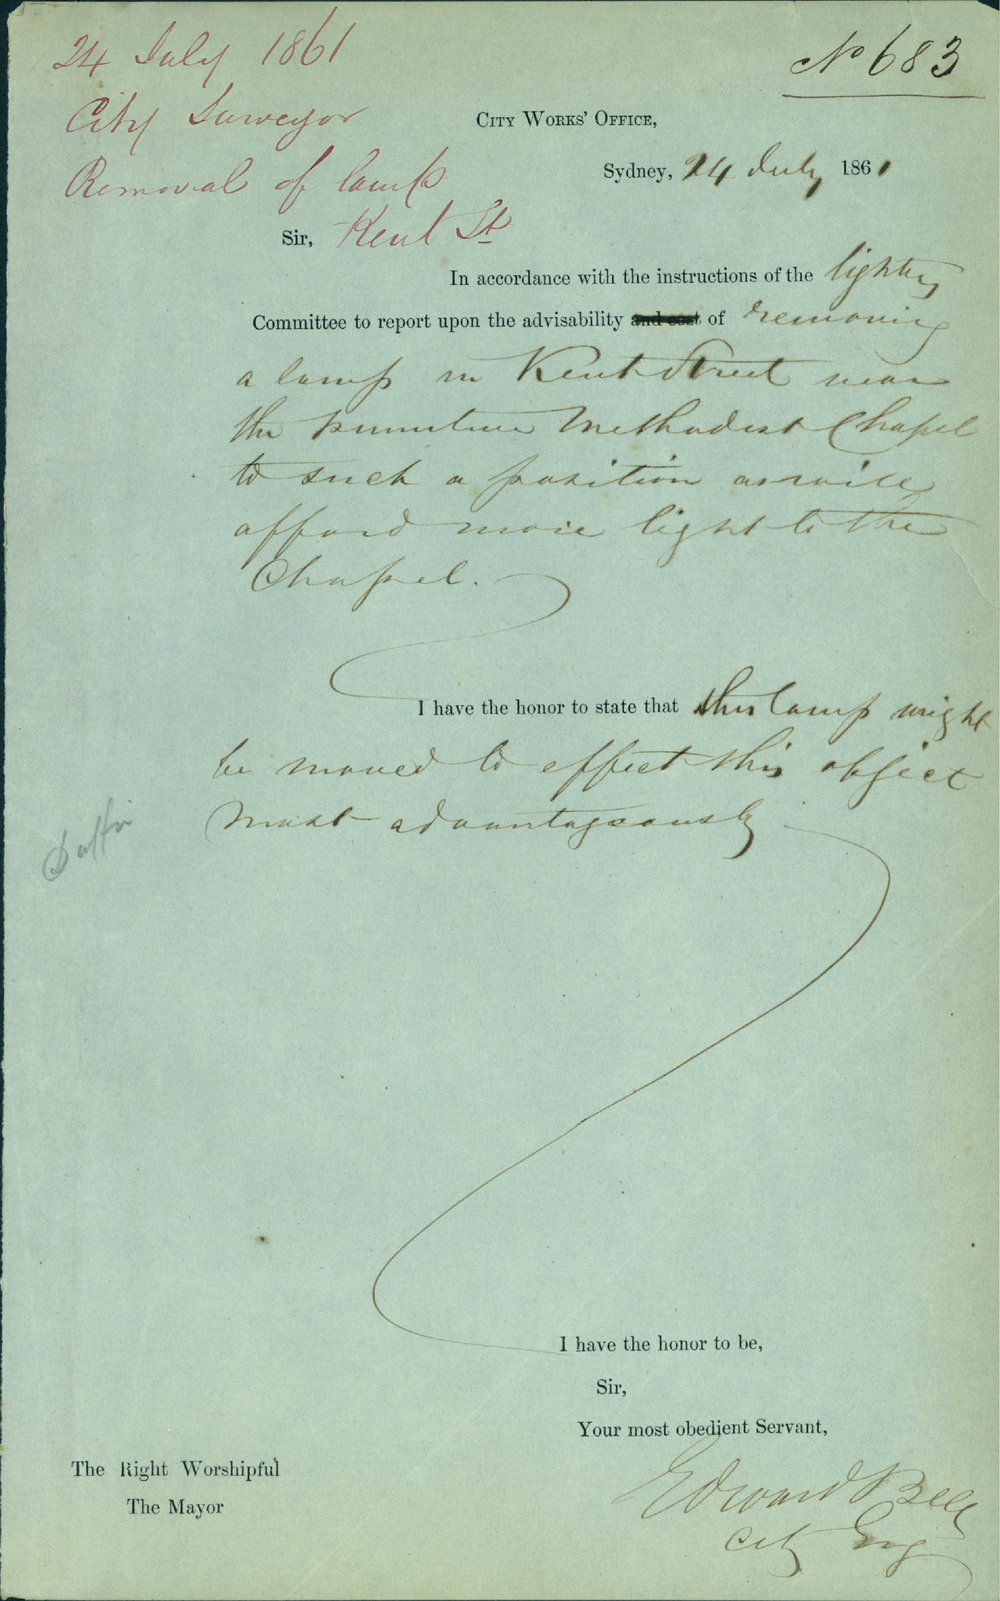 24 July 1861
City Surveyor
Removal of lamp
Kent St
No 683
City Works' Office,
Sydney, 24 July 1861
Sir,
In accordance with the instructions of the lighting
Committee to report upon the advisability and cost of removing
a lamp in Kent Street near
the primitive Methodist Chapel
to such a position as will
afford more light to the
Chapel.
I have the honor to state that this lamp might
be moved to effect this object
most advantageously
I have the honor to be,
Sir,
Your most obedient Servant,
Edward Bell
City Eng
The Right Worshipful
The Mayor